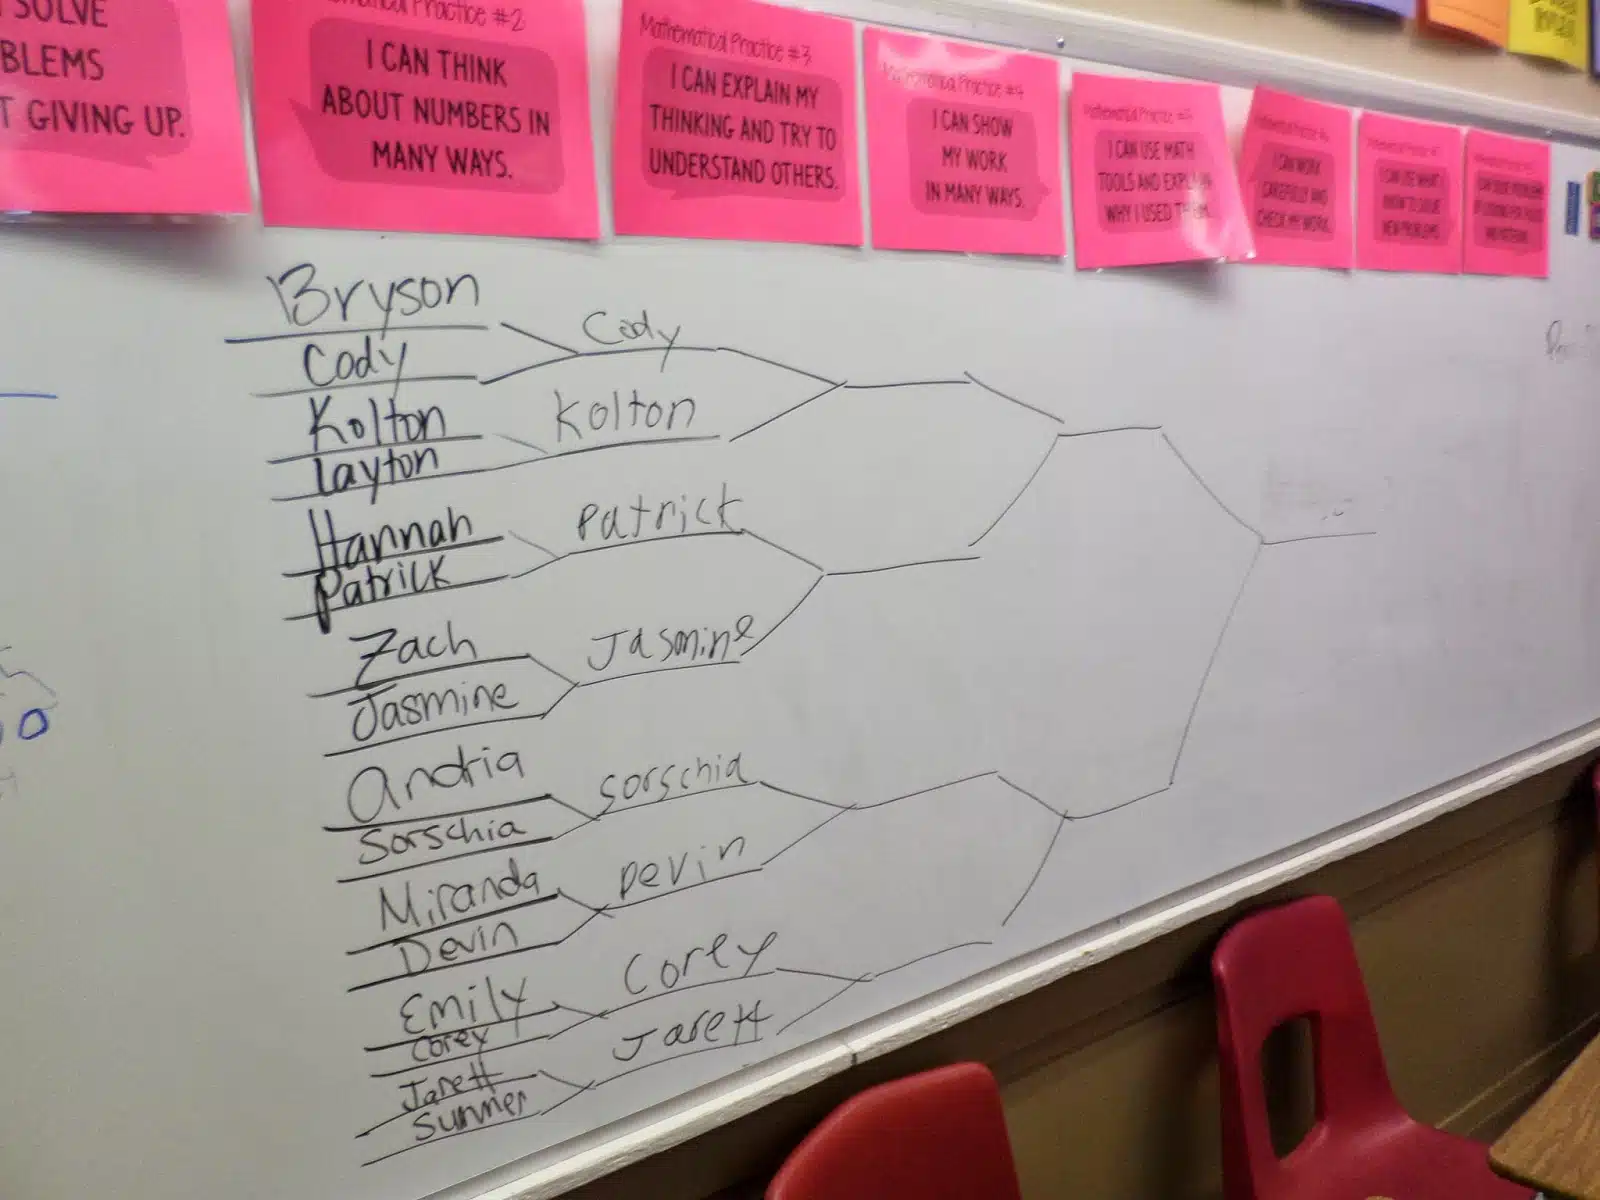 SOLVE
BLEMS
T GIVING UP.
Practice #2
I CAN THINK
ABOUT NUMBERS IN
MANY WAYS.
Mathematical Practice #3
I CAN EXPLAIN MY
THINKING AND TRY TO
UNDERSTAND OTHERS.
Mathematical Practice #4
I CAN SHOW
MY WORK
IN MANY WAYS.
Mathematical Practice
I CAN USE MATH
TOOLS AND EXPLAIN
WHY I USED THEM.
I CAN WORK
CAREFULLY AND
CHECK MY WORK.
I CAN USE WHAT I
KNOW TO SOLVE
NEW PROBLEMS
Bryson
Cody
Kolton
Layton
Hannah
Patrick
Zach
Jasmine
Andria
Sorschia
Miranda
Devin
Emily
Corey
Jarett
Summer
Cody
Kolton
Patrick
Jasmine
Sorschia
Devin
Corey
Jarett